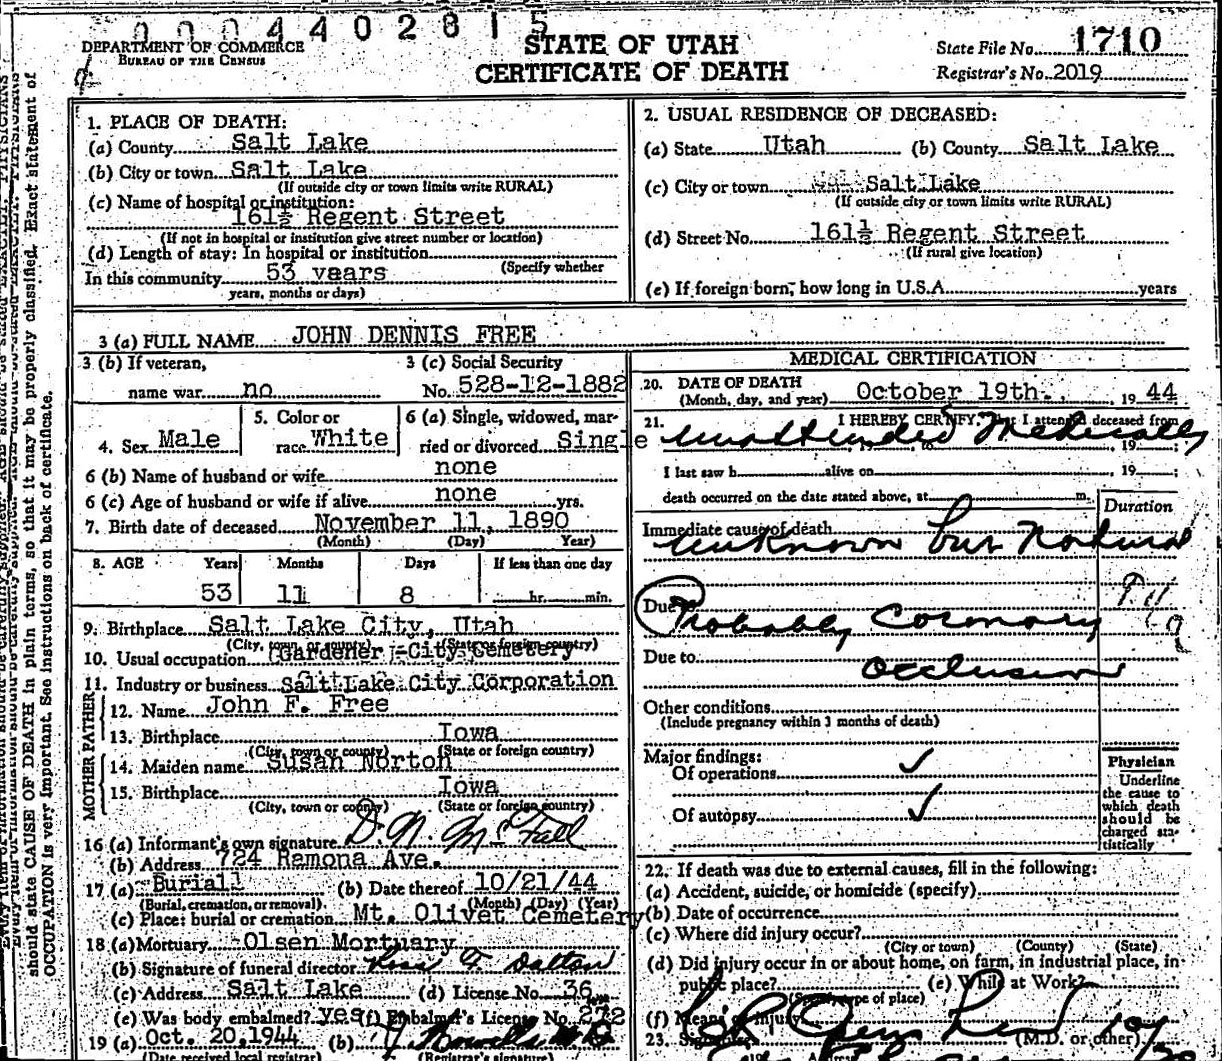 0004402815
DEPARTMENT OF COMMERCE
BUREAU OF THE CENSUS
STATE OF UTAH
CERTIFICATE OF DEATH
State File No. 1710
Registrar's No. 2019
1. PLACE OF DEATH:
(a) County Salt Lake
(b) City or town Salt Lake
(If outside city or town limits write RURAL)
(c) Name of hospital or institution:
161½ Regent Street
(If not in hospital or institution give street number or location)
(d) Length of stay: In hospital or institution
(Specify whether
In this community 53 years
years, months or days)
2. USUAL RESIDENCE OF DECEASED:
(a) State Utah (b) County Salt Lake
(c) City or town Salt Lake
(If outside city or town limits write RURAL)
(d) Street No. 161½ Regent Street
(If rural give location)
(e) If foreign born, how long in U.S.A. years
3 (a) FULL NAME JOHN DENNIS FREE
3 (b) If veteran,
name war no
3 (c) Social Security
No. 528-12-1882
4. Sex Male
5. Color or
race White
6 (a) Single, widowed, mar-
ried or divorced Single
6 (b) Name of husband or wife none
6 (c) Age of husband or wife if alive none yrs.
7. Birth date of deceased November 11, 1890
(Month) (Day) Year)
8. AGE Years Months Days If less than one day
53 11 8 hr. min.
9. Birthplace Salt Lake City, Utah
(City, town or county) (State or foreign country)
10. Usual occupation Gardener -City Cemetery
11. Industry or business Salt Lake City Corporation
FATHER
12. Name John F. Free
13. Birthplace Iowa
(City, town or county) (State or foreign country)
MOTHER
14. Maiden name Susan Norton
15. Birthplace Iowa
(City, town or county) (State or foreign country)
16 (a) Informant's own signature D. N. McFall
(b) Address 724 Ramona Ave.
17 (a) Burial (b) Date thereof 10/21/44
(Burial, cremation, or removal) (Month) (Day) (Year)
(c) Place: burial or cremation Mt. Olivet Cemetery
18 (a) Mortuary Olsen Mortuary
(b) Signature of funeral director Ross F. Dalton
(c) Address Salt Lake (d) License No. 36
(e) Was body embalmed? yes (f) Embalmer's License No. 272
19 (a) Oct. 20, 1944 (b)
(Date received local registrar) (Registrar's signature)
MEDICAL CERTIFICATION
20. DATE OF DEATH
(Month, day, and year) October 19th. 19 44
21. I HEREBY CERTIFY, That I attended deceased from
Unattended Medically
19 to 19
I last saw h alive on 19
death occurred on the date stated above, at m.
Duration
Immediate cause of death
Unknown but Natural
Due to Probably Coronary
Due to Occlusion
Other conditions
(Include pregnancy within 3 months of death)
Major findings:
Of operations ✓
Of autopsy ✓
Physician
Underline
the cause to
which death
should be
charged sta-
tistically
22. If death was due to external causes, fill in the following:
(a) Accident, suicide, or homicide (specify)
(b) Date of occurrence
(c) Where did injury occur?
(City or town) (County) (State)
(d) Did injury occur in or about home, on farm, in industrial place, in
public place? (e) While at Work?
(Specify type of place)
(f) Means of injury
23. Signature (M.D. or other)
should state CAUSE OF DEATH in plain terms, so that it may be properly classified. Exact statement of
OCCUPATION is very important. See instructions on back of certificate.